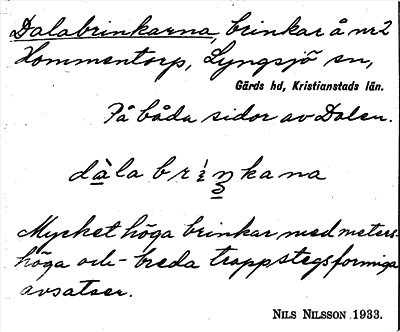 Dalabrinkarna, brinkar å nr 2
Hommentorp, Lyngsjö sn,
Gärds hd, Kristianstads län.
På båda sidor av Dalen.
dàlabriŋkana
Mycket höga brinkar med meters-
höga och breda trappstegsformiga
avsatser.
NILS NILSSON 1933.